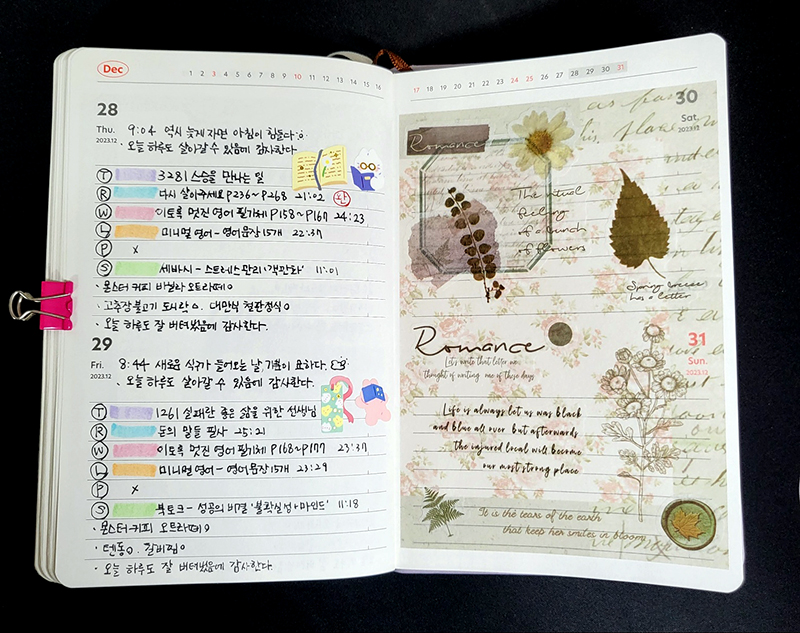 Dec
1 2 3 4 5 6 7 8 9 10 11 12 13 14 15 16
28
Thu.
2023.12
9:04 역시 늦게 자면 아침이 힘들다
· 오늘 하루도 살아갈 수 있음에 감사한다.
T 3281 스승을 만나는 일
R 다시 살아주세요 P236~P268 21:02 완
W 이토록 멋진 영어 필기체 P158~P167 24:23
L 미니멀 영어 - 영어문장 15개 22:37
P x
S 세바시 - 스트레스 관리 '객관화' 11:01
· 몬스터 커피 바닐라 오트라떼
· 고추장불고기 도시락 대만식 철판정식
· 오늘 하루도 잘 버텨냈음에 감사한다.
29
Fri.
2023.12
8:44 새로운 식구가 들어오는 날, 기분이 묘하다.
· 오늘 하루도 살아갈 수 있음에 감사한다.
T 1261 실패란 좋은 삶을 위한 선생님
R 돈의 말들 필사 25:21
W 이토록 멋진 영어 필기체 P168~P177 23:37
L 미니멀 영어 - 영어문장 15개 23:29
P x
S 북토크 - 성공의 비결 '불확실성+마인드' 11:18
· 몬스터 커피 오트라떼
· 텐동 . 갈비찜
· 오늘 하루도 잘 버텨냈음에 감사한다.
17 18 19 20 21 22 23 24 25 26 27 28 29 30 31
30
Sat.
2023.12
Romance
The usual
feeling
of a bunch
of flowers
Spring breeze
has a letter
Romance
Let's write that letter we
thought of writing one of these days
31
Sun.
2023.12
Life is always let us was black
and blue all over but afterwards
the injured local will become
our most strong place
It is the tears of the earth
that keep her smiles in bloom